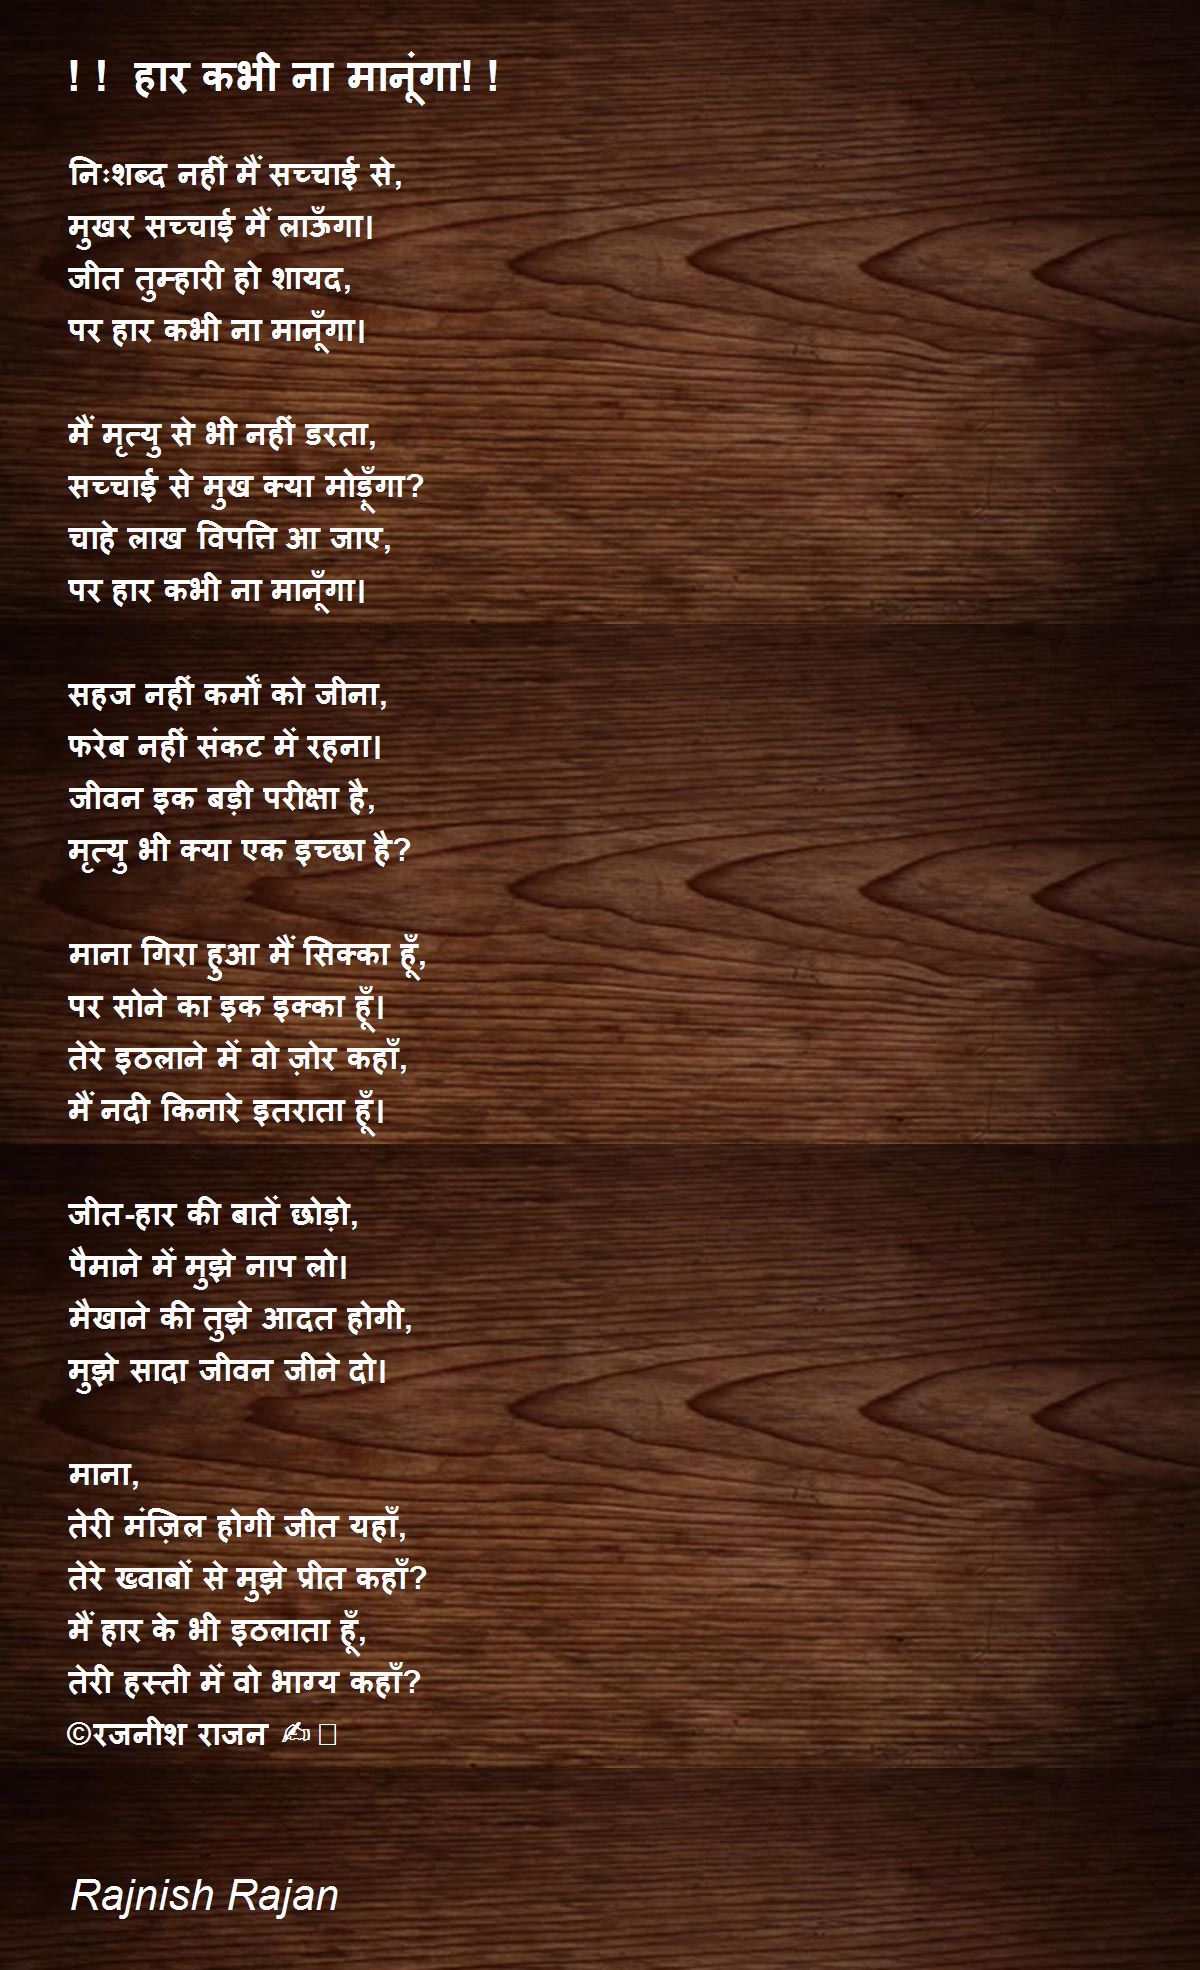 ! !  हार कभी ना मानूंगा! !
निःशब्द नहीं मैं सच्चाई से,
मुखर सच्चाई मैं लाऊँगा।
जीत तुम्हारी हो शायद,
पर हार कभी ना मानूँगा।
मैं मृत्यु से भी नहीं डरता,
सच्चाई से मुख क्या मोड़ूँगा?
चाहे लाख विपत्ति आ जाए,
पर हार कभी ना मानूँगा।
सहज नहीं कर्मों को जीना,
फरेब नहीं संकट में रहना।
जीवन इक बड़ी परीक्षा है,
मृत्यु भी क्या एक इच्छा है?
माना गिरा हुआ मैं सिक्का हूँ,
पर सोने का इक इक्का हूँ।
तेरे इठलाने में वो ज़ोर कहाँ,
मैं नदी किनारे इतराता हूँ।
जीत-हार की बातें छोड़ो,
पैमाने में मुझे नाप लो।
मैखाने की तुझे आदत होगी,
मुझे सादा जीवन जीने दो।
माना,
तेरी मंज़िल होगी जीत यहाँ,
तेरे ख्वाबों से मुझे प्रीत कहाँ?
मैं हार के भी इठलाता हूँ,
तेरी हस्ती में वो भाग्य कहाँ?
©रजनीश राजन ✍
Rajnish Rajan